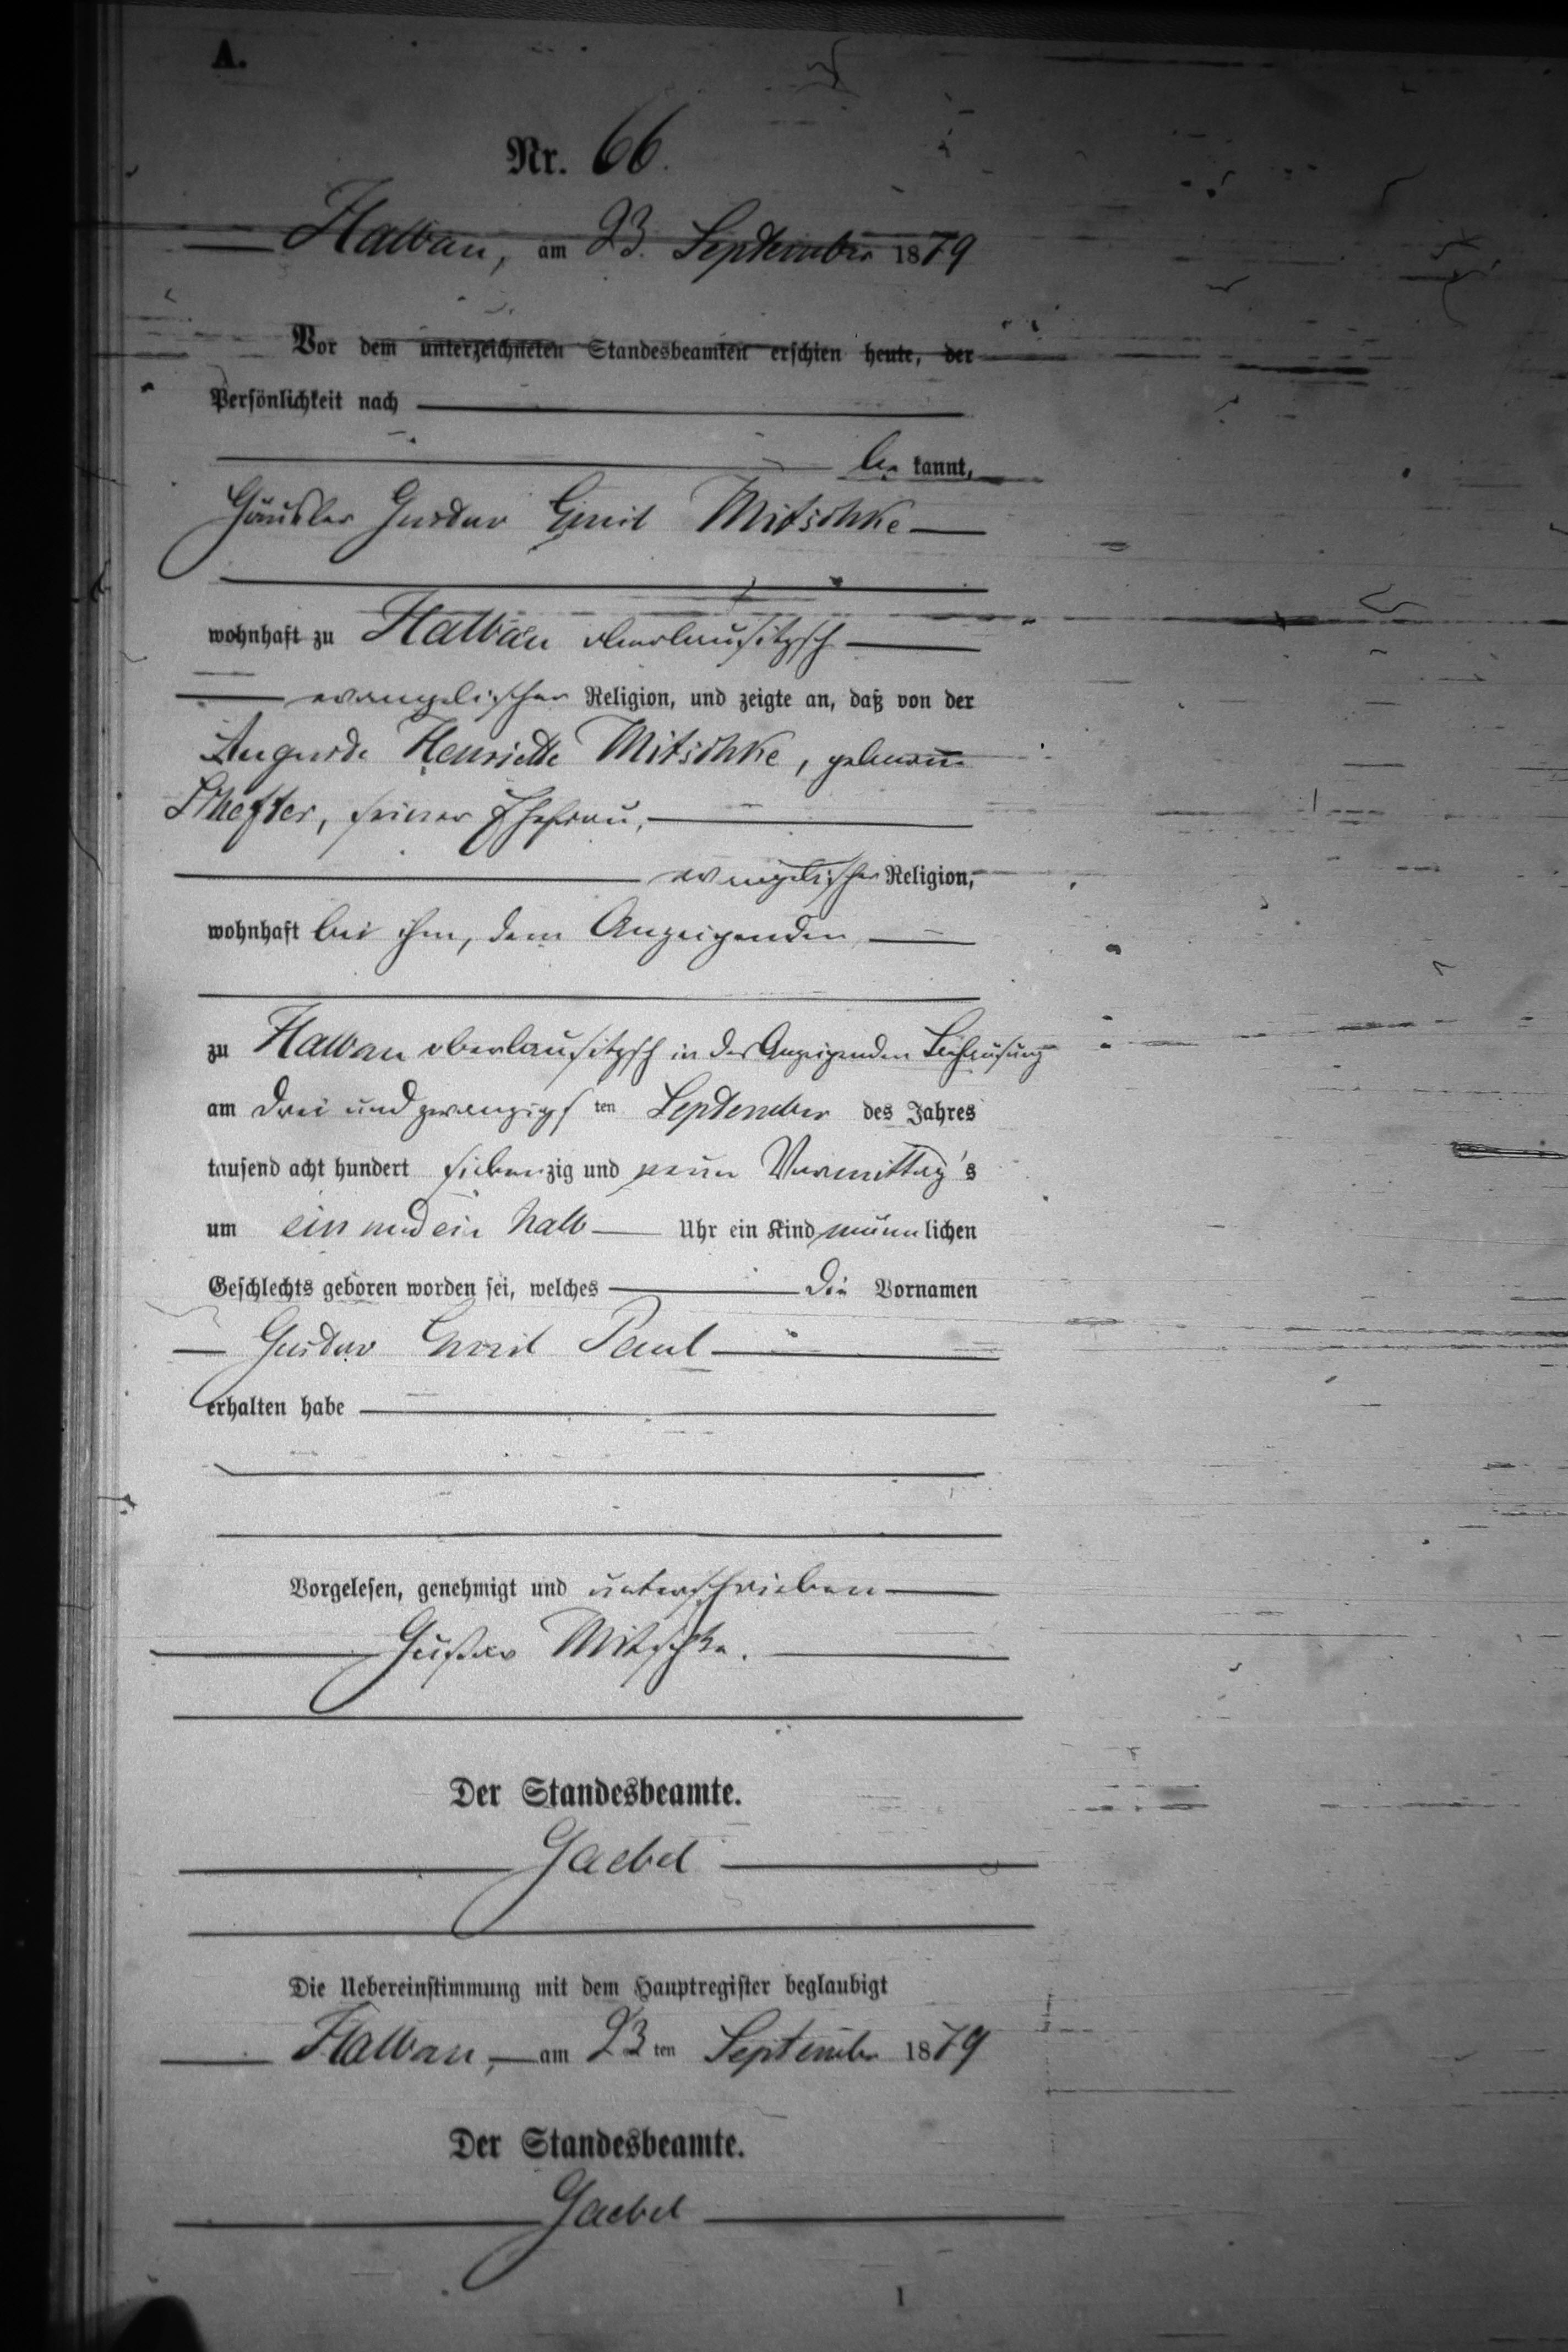 A.
Nr. 66.
Halbau, am 23. September 1879
Vor dem unterzeichneten Standesbeamten erschien heute, der
Persönlichkeit nach
be kannt,
Häusler Gustav Emil Mitschke
wohnhaft zu Halbau oberlausitzsch
evangelischer Religion, und zeigte an, daß von der
Auguste Henriette Mitschke, geborenen
seiner Ehefrau,
evangelischer Religion,
wohnhaft bei ihm, dem Anzeigenden
zu Halbau oberlausitzsch in des Anzeigenden Behausung
am drei und zwanzigs ten September des Jahres
tausend acht hundert siebenzig und neun Vormittag's
um ein und ein halb Uhr ein Kind männlichen
Geschlechts geboren worden sei, welches die Vornamen
Gustav Emil Paul
erhalten habe
Vorgelesen, genehmigt und unterschrieben
Gustav Mitschke.
Der Standesbeamte.
Gaebel
Die Uebereinstimmung mit dem Hauptregister beglaubigt
Halbau, am 23 ten September 1879
Der Standesbeamte.
Gaebel